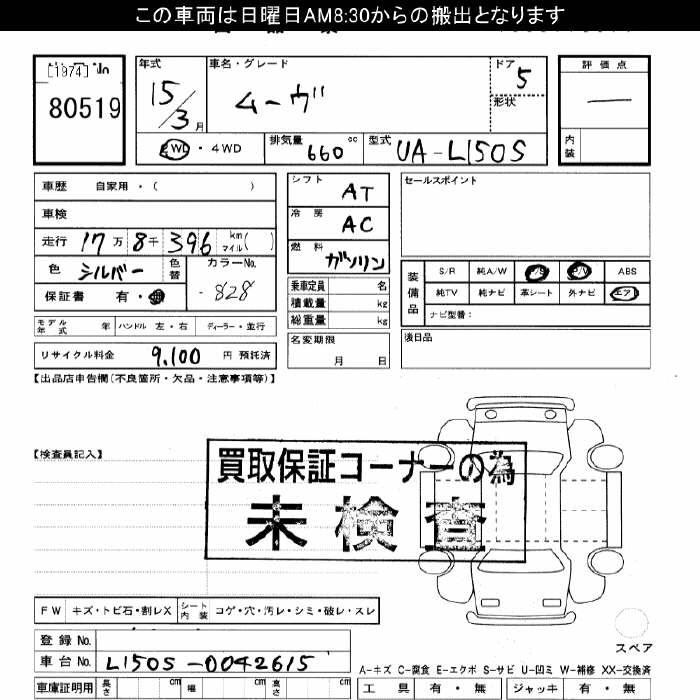 この車両は日曜日AM8:30からの搬出となります
[1974]
80519
年式 15/3月
車名・グレード ムーヴ
ドア 5
形状
評価点 —
内装
2WD・4WD
排気量 660 cc
型式 UA-L150S
車歴 自家用・( )
車検
走行 17万8千396 km マイル( )
色 シルバー 色替
カラーNo. -828
保証書 有・
モデル年式 年 ハンドル 左・右 ディーラー・並行
リサイクル料金 9,100 円 預託済
シフト AT
冷房 AC
燃料 ガソリン
乗車定員 名
積載量 kg
総重量 kg
名変期限 月 日
セールスポイント
装備品 S/R 純A/W P/S P/W ABS
純TV 純ナビ 革シート 外ナビ エアB
ナビ型番:
後日品
【出品店申告欄(不良箇所・欠品・注意事項等)】
【検査員記入】
買取保証コーナーの為
未検査
FW キズ・トビ石・割レX シート内装 コゲ・穴・汚レ・シミ・破レ・スレ
登録No.
車台No. L150S-0042615
車庫証明用 長さ cm 幅 cm 高さ cm
スペア
A-キズ C-腐食 E-エクボ S-サビ U-凹ミ W-補修 XX-交換済
工具 有・無 ジャッキ 有・無